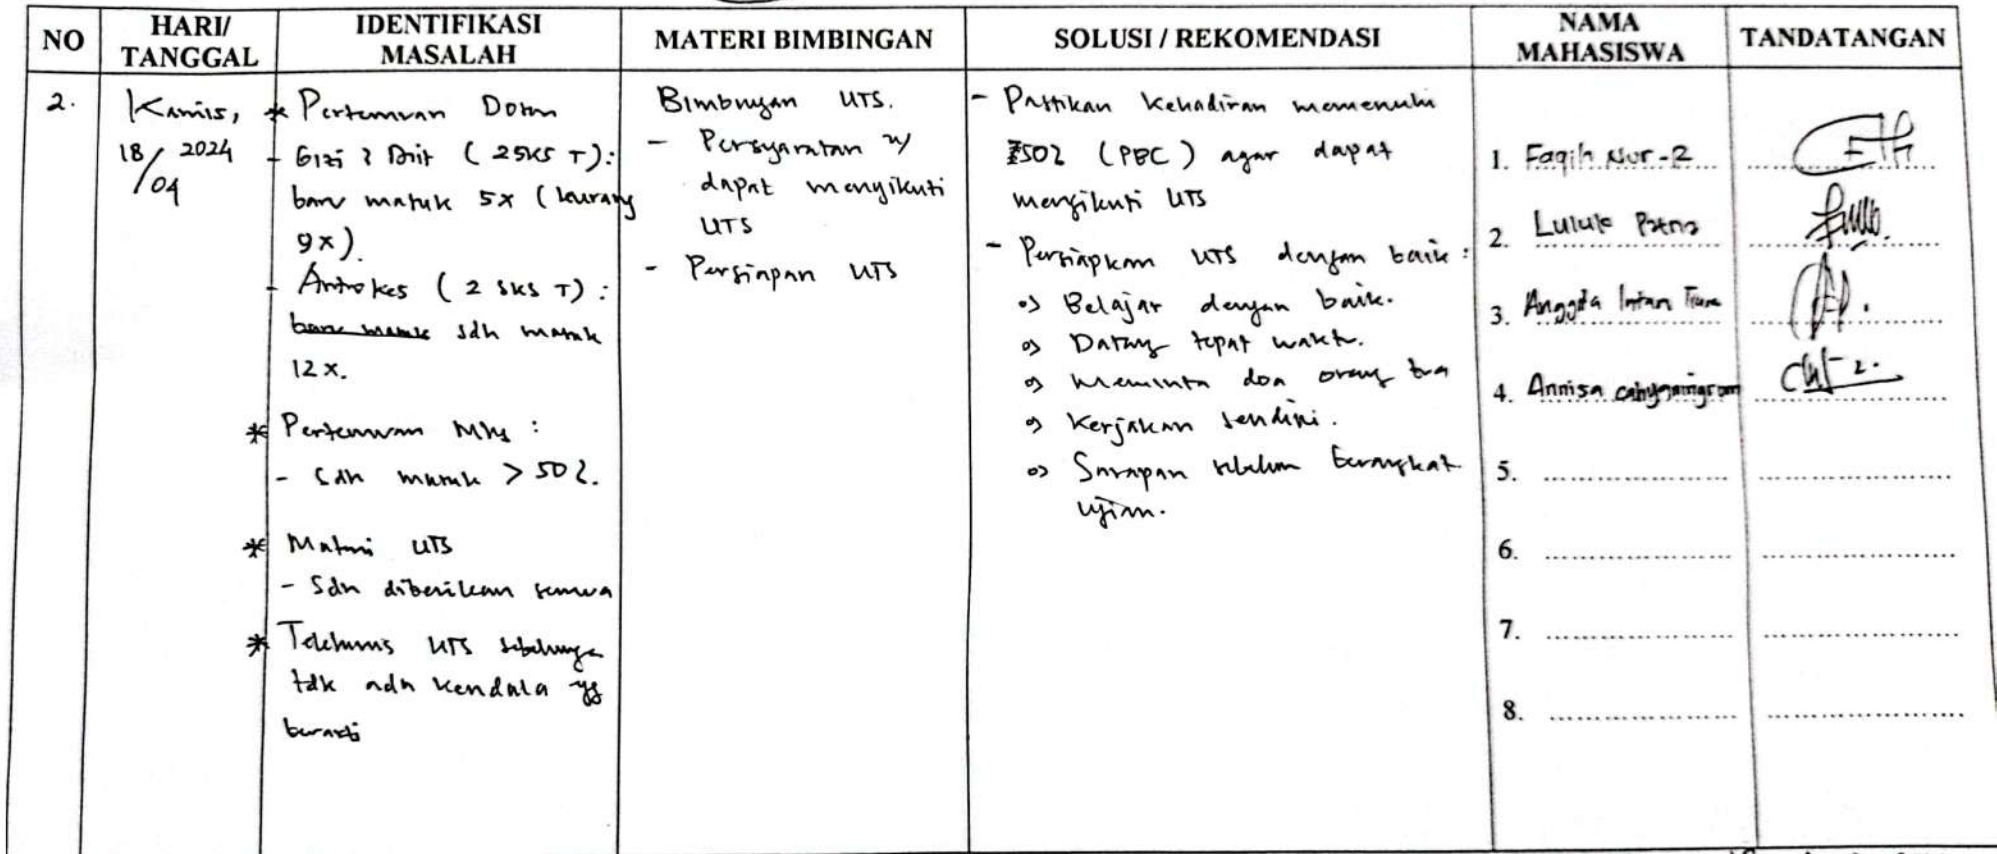 NO
HARI/
TANGGAL
IDENTIFIKASI
MASALAH
MATERI BIMBINGAN
SOLUSI / REKOMENDASI
NAMA
MAHASISWA
TANDATANGAN
2.
Kamis,
18/04 2024
* Pertemuan Dosen
- Gizi & Diit (2 SKS T):
baru masuk 5x (kurang
9x).
- Antrokes (2 SKS T):
sdh masuk
12x.
* Pertemuan Mhs :
- Sdh masuk > 50%.
* Materi UTS
- Sdh diberikan semua
* Teknis UTS sebelumnya
tdk ada kendala yg
berarti
Bimbingan UTS.
- Persyaratan u/
dapat mengikuti
UTS
- Persiapan UTS
- Pastikan kehadiran memenuhi
50% (PBC) agar dapat
mengikuti UTS
- Persiapkan UTS dengan baik :
o) Belajar dengan baik.
o) Datang tepat waktu.
o) Meminta doa orang tua
o) Kerjakan sendiri.
o) Sarapan sebelum berangkat
ujian.
1. Faqih Nur-R
2. Luluk
3. Anggita Intan
4. Annisa cahyaningrum
5.
6.
7.
8.